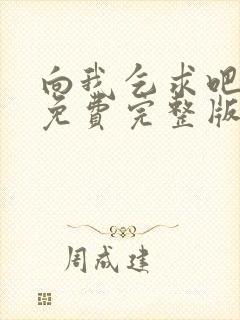 向我乞求吧
免费完整版
周成建